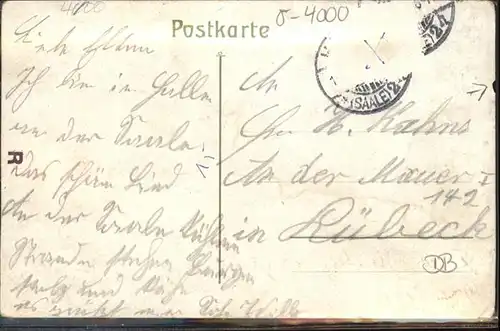 4000
Postkarte
σ-4000
(SAALE) 2
Liebe Eltern
Ich bin in Halle
an der Saale.
Das schöne Lied
An der Saale kühlem
Strande stehen Burgen
stolz und kühn
es grüßt euer Sohn Willi
R
An
H. Kahns
An der Mauer
142
in Lübeck
DB